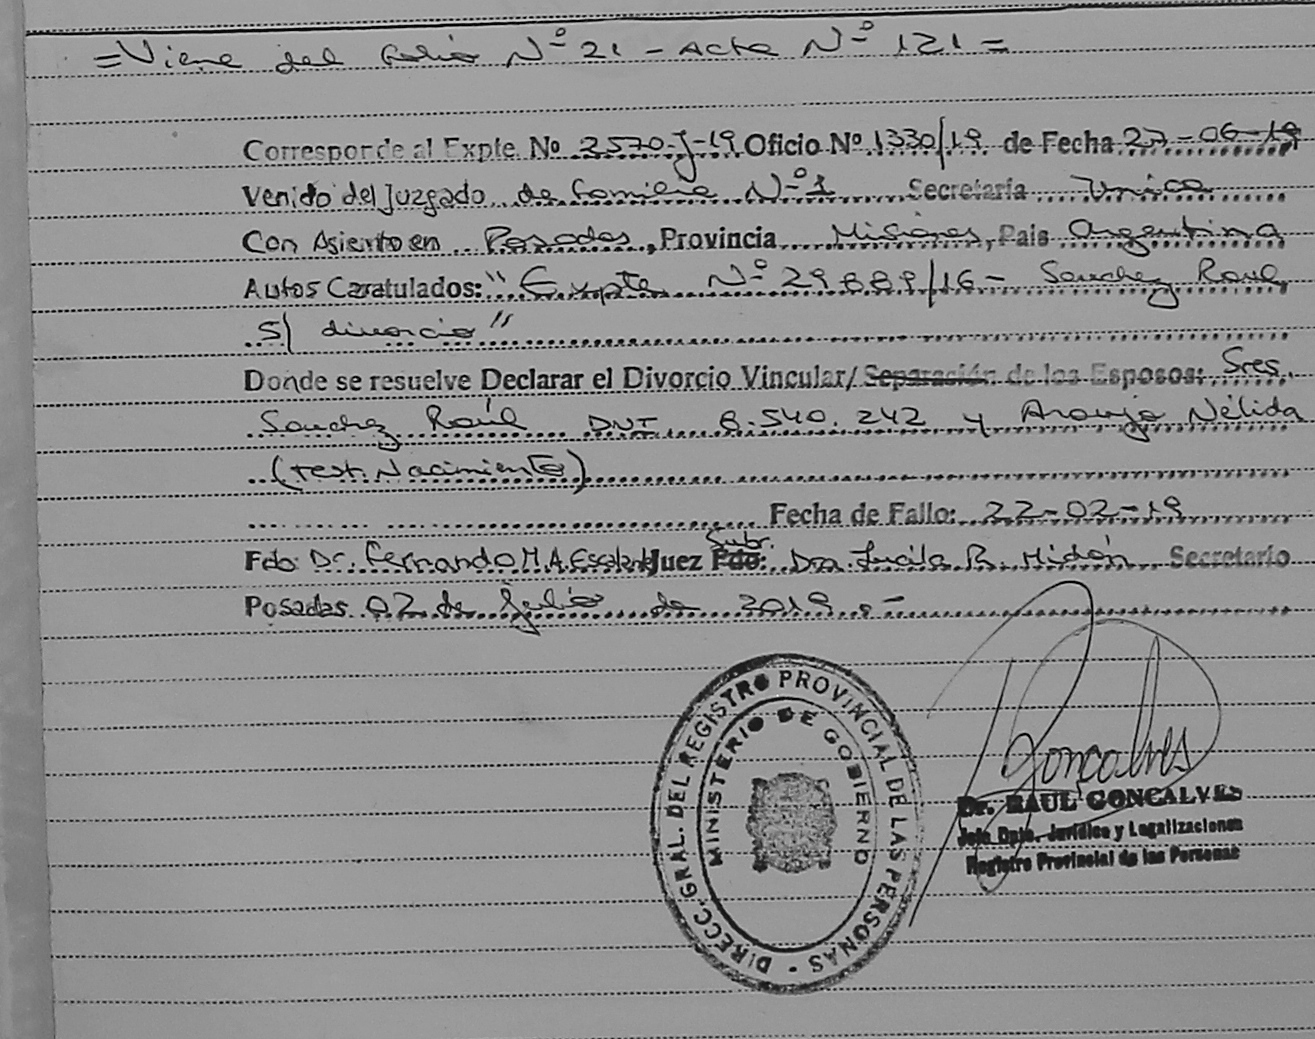 =Viene del folio Nº 21 - Acta Nº 121=
Corresponde al Expte. Nº 2570-J-19 Oficio Nº 1330/19 de Fecha 27-06-19
Venido del Juzgado de Familia Nº 1 Secretaría Unica
Con Asiento en Posadas, Provincia Misiones, País Argentina
Autos Caratulados: "Expte Nº 29889/16 - Sanchez Raul
S/ divorcio"
Donde se resuelve Declarar el Divorcio Vincular/ Separación de los Esposos: Sres.
Sanchez Raúl DNI 8.540.242 y Araujo Nélida
(rest. Nacimiento)
Fecha de Fallo: 22-02-19
Subr.
Fdo: Dr. Fernando M.A. Juez Fdo: Dra. Lucila R. Midón Secretario
Posadas 02 de Julio de 2019.-
DIRECC. GRAL. DEL REGISTRO PROVINCIAL DE LAS PERSONAS -
MINISTERIO DE GOBIERNO
RGoncalves
Dr. RAUL GONCALVES
Jefe Dpto. Jurídico y Legalizaciones
Registro Provincial de las Personas